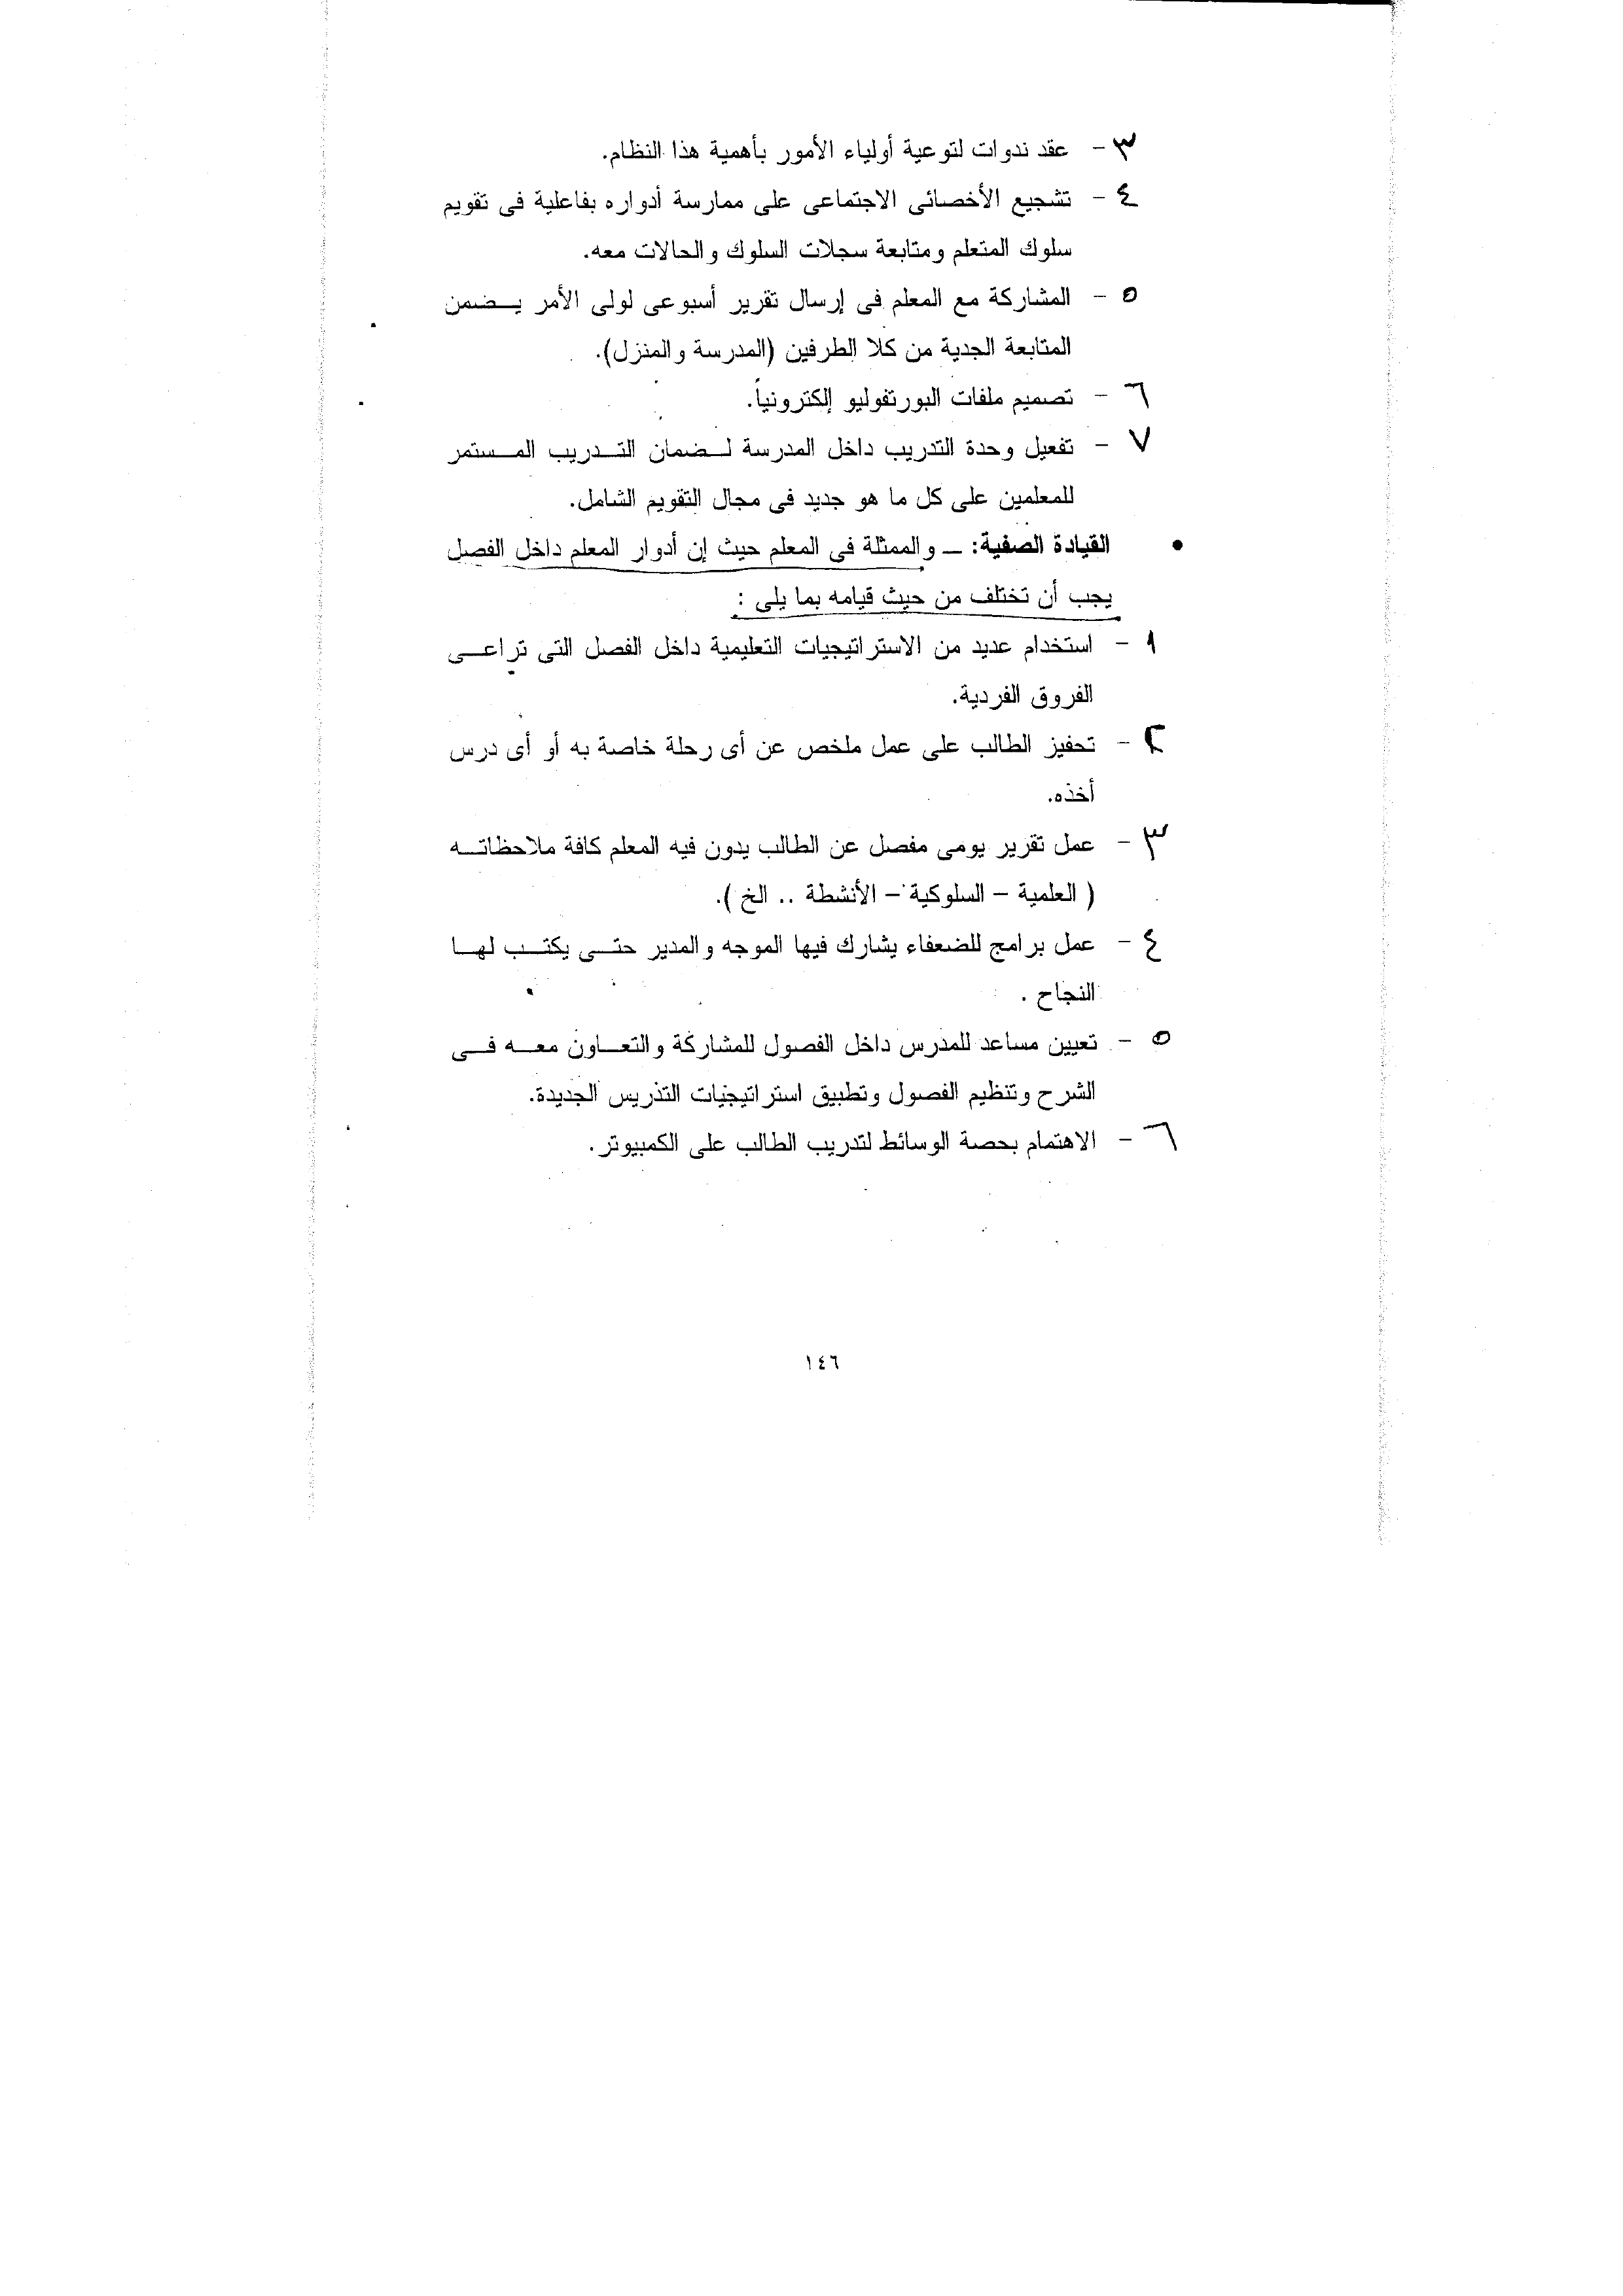 ٣ - عقد ندوات لتوعية أولياء الأمور بأهمية هذا النظام.
٤ - تشجيع الأخصائى الاجتماعى على ممارسة أدواره بفاعلية فى تقويم
سلوك المتعلم ومتابعة سجلات السلوك والحالات معه.
٥ - المشاركة مع المعلم فى إرسال تقرير أسبوعى لولى الأمر يضمن
المتابعة الجدية من كلا الطرفين (المدرسة والمنزل).
٦ - تصميم ملفات البورتفوليو إلكترونياً.
٧ - تفعيل وحدة التدريب داخل المدرسة لضمان التدريب المستمر
للمعلمين على كل ما هو جديد فى مجال التقويم الشامل.
• القيادة الصفية: ــ والممثلة فى المعلم حيث إن أدوار المعلم داخل الفصل
يجب أن تختلف من حيث قيامه بما يلى :
١ - استخدام عديد من الاستراتيجيات التعليمية داخل الفصل التى تراعى
الفروق الفردية.
٢ - تحفيز الطالب على عمل ملخص عن أى رحلة خاصة به أو أى درس
أخذه.
٣ - عمل تقرير يومى مفصل عن الطالب يدون فيه المعلم كافة ملاحظاته
( العلمية – السلوكية – الأنشطة .. الخ ).
٤ - عمل برامج للضعفاء يشارك فيها الموجه والمدير حتى يكتب لها
النجاح .
٥ - تعيين مساعد للمدرس داخل الفصول للمشاركة والتعاون معه فى
الشرح وتنظيم الفصول وتطبيق استراتيجيات التدريس الجديدة.
٦ - الاهتمام بحصة الوسائط لتدريب الطالب على الكمبيوتر.
١٤٦